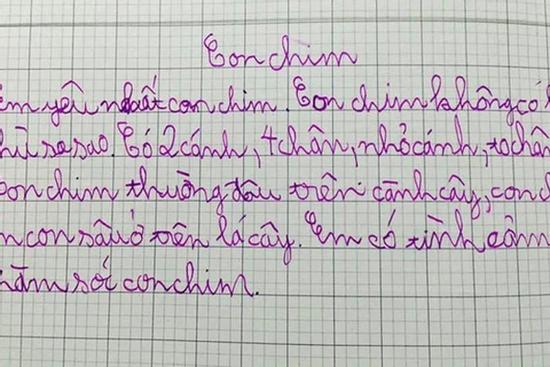 Con chim
em yêu nhất con chim. Con chim không có
sao. Có 2 cánh, 4 chân, nhỏ cánh, to chân
con chim thường đâu trên cành cây, con
con sâu ở trên lá cây. Em có tình cảm
hăm sóc con chim.